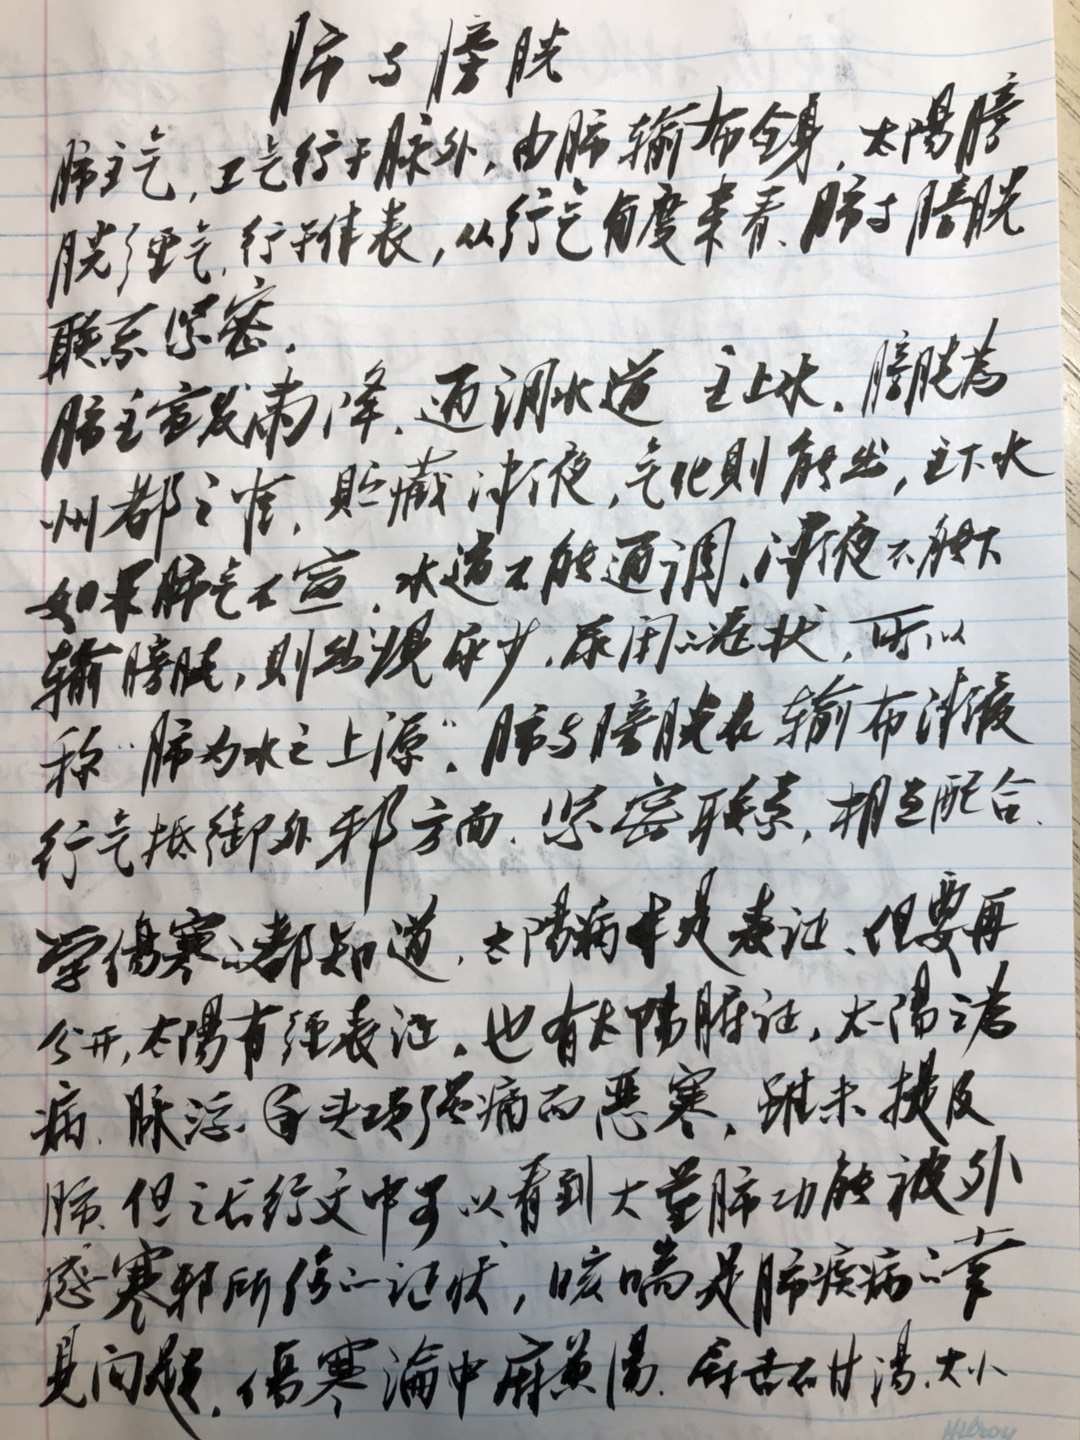 肺与膀胱
肺主气，卫气行于脉外，由肺输布全身，太阳膀
胱经气，行于体表，从行气角度来看、肺与膀胱
联系紧密。
肺主宣发肃降、通调水道 主上水。膀胱为
州都之官，贮藏津液，气化则能出，主下水
如果肺气不宣，水道不能通调、津液不能下
输膀胱，则出现尿少，尿闭的症状，所以
称“肺为水之上源”。肺与膀胱在输布津液
行气抵御外邪方面、紧密联系，相互配合.
学伤寒的都知道，太阳病本是表证、但要再
分开，太阳有经表证，也有太阳腑证，太阳之为
病、脉浮、头项强痛而恶寒，虽未提及
肺、但之后行文中可以看到大量肺功能被外
感寒邪所伤的证状，咳喘是肺疾病的常
见问题，傷寒論中麻黄汤、麻杏石甘汤、大小